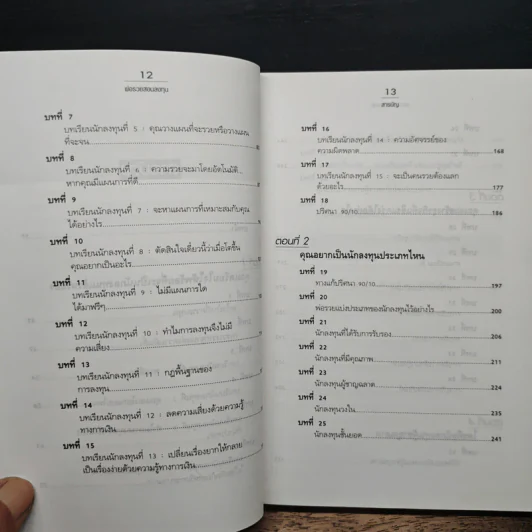 12
พ่อรวยสอนลงทุน
บทที่ 7
บทเรียนนักลงทุนที่ 5 : คุณวางแผนที่จะรวยหรือวางแผน
ที่จะจน
บทที่ 8
บทเรียนนักลงทุนที่ 6 : ความรวยจะมาโดยอัตโนมัติ
หากคุณมีแผนการที่ดี
บทที่ 9
บทเรียนนักลงทุนที่ 7 : จะหาแผนการที่เหมาะสมกับคุณ
ได้อย่างไร
บทที่ 10
บทเรียนนักลงทุนที่ 8 : ตัดสินใจเดี๋ยวนี้ว่าเมื่อโตขึ้น
คุณอยากเป็นอะไร
บทที่ 11
บทเรียนนักลงทุนที่ 9 : ไม่มีแผนการใด
ได้มาฟรีๆ
บทที่ 12
บทเรียนนักลงทุนที่ 10 : ทำไมการลงทุนจึงไม่มี
ความเสี่ยง
บทที่ 13
บทเรียนนักลงทุนที่ 11 : กฎพื้นฐานของ
การลงทุน
บทที่ 14
บทเรียนนักลงทุนที่ 12 : ลดความเสี่ยงด้วยความรู้
ทางการเงิน
บทที่ 15
บทเรียนนักลงทุนที่ 13 : เปลี่ยนเรื่องยากให้กลาย
เป็นเรื่องง่ายด้วยความรู้ทางการเงิน
13
สารบัญ
บทที่ 16
บทเรียนนักลงทุนที่ 14 : ความอัศจรรย์ของ
ความผิดพลาด 168
บทที่ 17
บทเรียนนักลงทุนที่ 15 : จะเป็นคนรวยต้องแลก
ด้วยอะไร 177
บทที่ 18
ปริศนา 90/10 186
ตอนที่ 2
คุณอยากเป็นนักลงทุนประเภทไหน
บทที่ 19
ทางแก้ปริศนา 90/10 197
บทที่ 20
พ่อรวยแบ่งประเภทของนักลงทุนไว้อย่างไร 200
บทที่ 21
นักลงทุนที่ได้รับการรับรอง 206
บทที่ 22
นักลงทุนที่มีคุณภาพ 211
บทที่ 23
นักลงทุนผู้ชาญฉลาด 224
บทที่ 24
นักลงทุนวงใน 235
บทที่ 25
นักลงทุนชั้นยอด 241